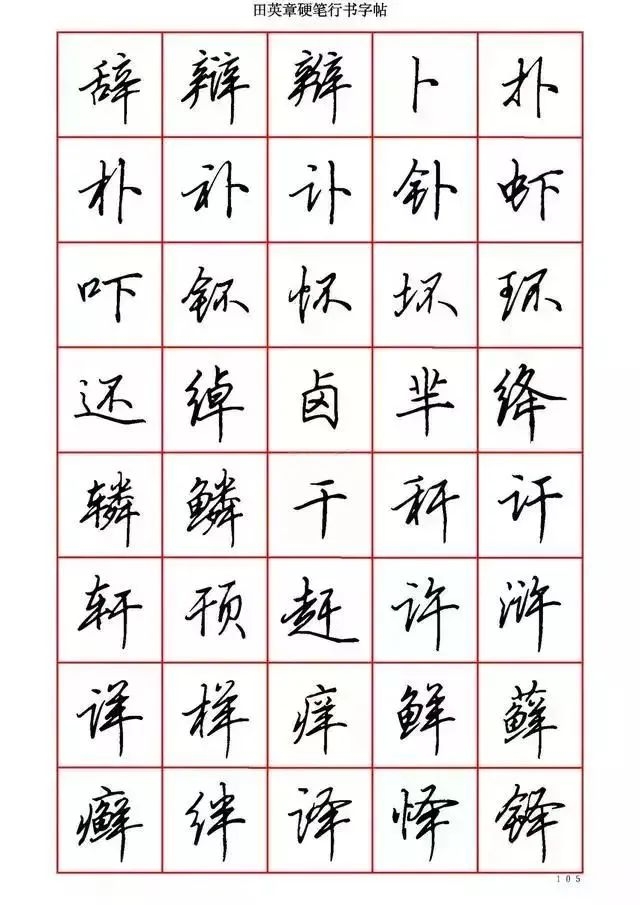 田英章硬笔行书字帖
辞 辩 辫 卜 扑
朴 补 讣 钋 虾
吓 钚 怀 坏 环
还 绰 卤 芈 绛
辚 鳞 干 秆 讦
轩 顸 赶 许 浒
详 样 痒 鲜 藓
癣 绊 译 怿 铎
105